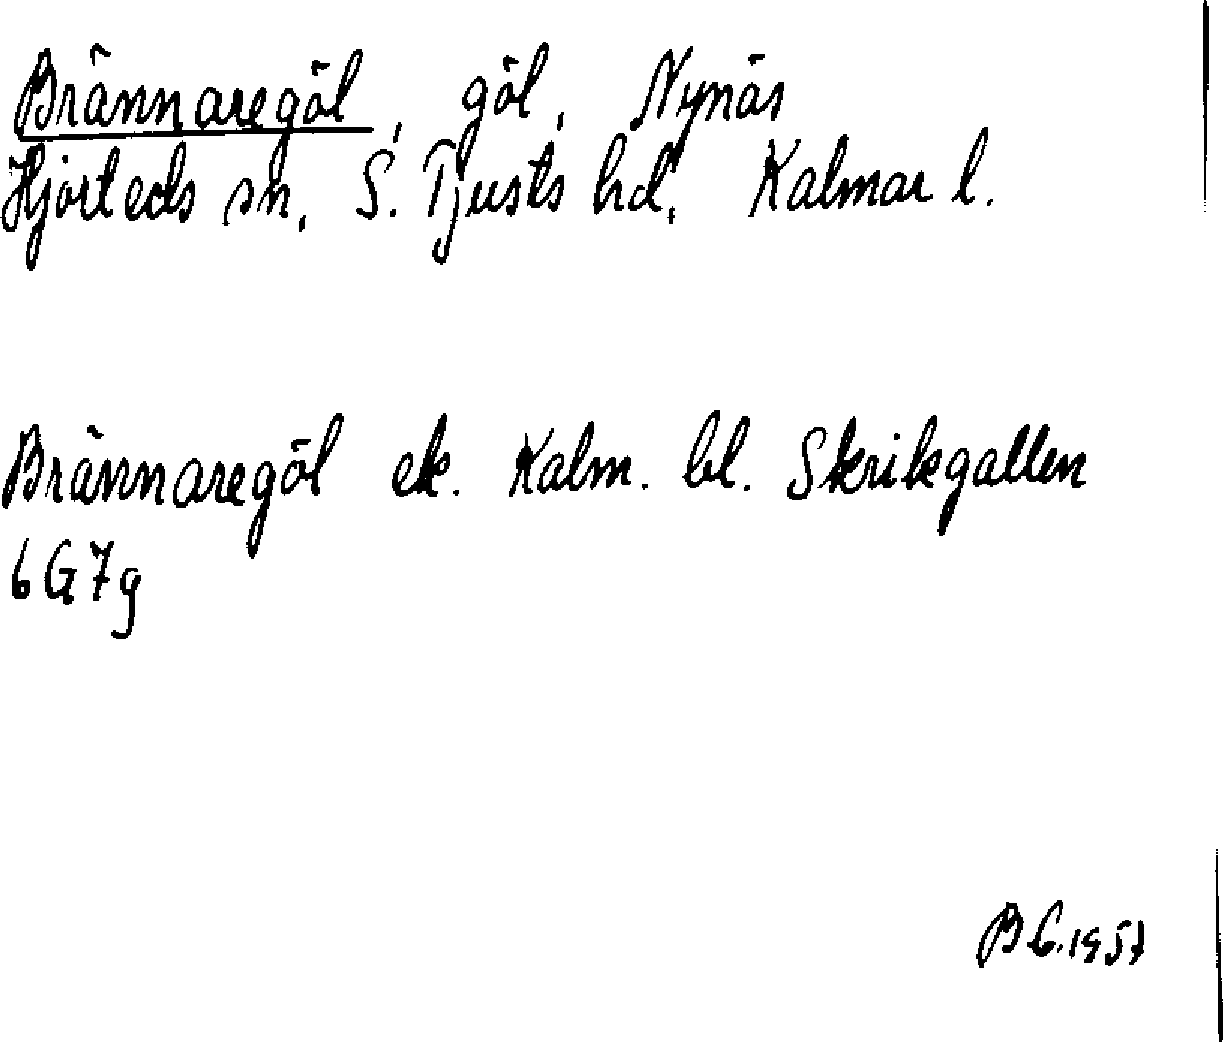 Brännaregöl, göl, Nynäs
Hjorteds sn, S. Tjusts hd, Kalmar l.
Brännaregöl ek. Kalm. bl. Skrikgallen
6G7g
BC.1957